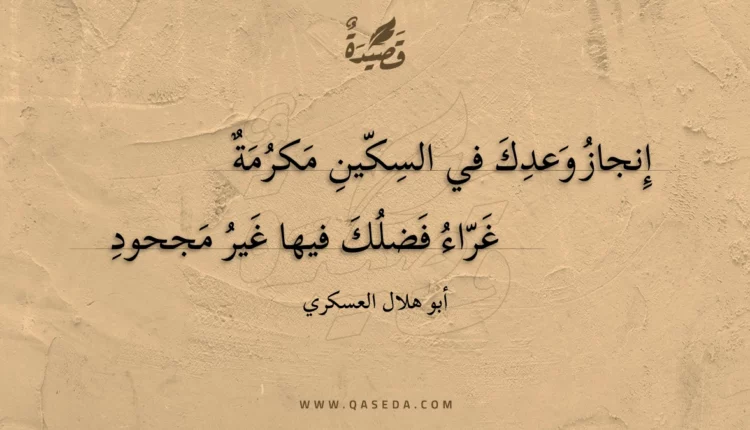 قَصِيدَةٌ
إِنجازُ وَعدِكَ في السِكّينِ مَكرُمَةٌ
غَرّاءُ فَضلُكَ فيها غَيرُ مَجحودِ
أبو هلال العسكري
WWW.QASEDA.COM